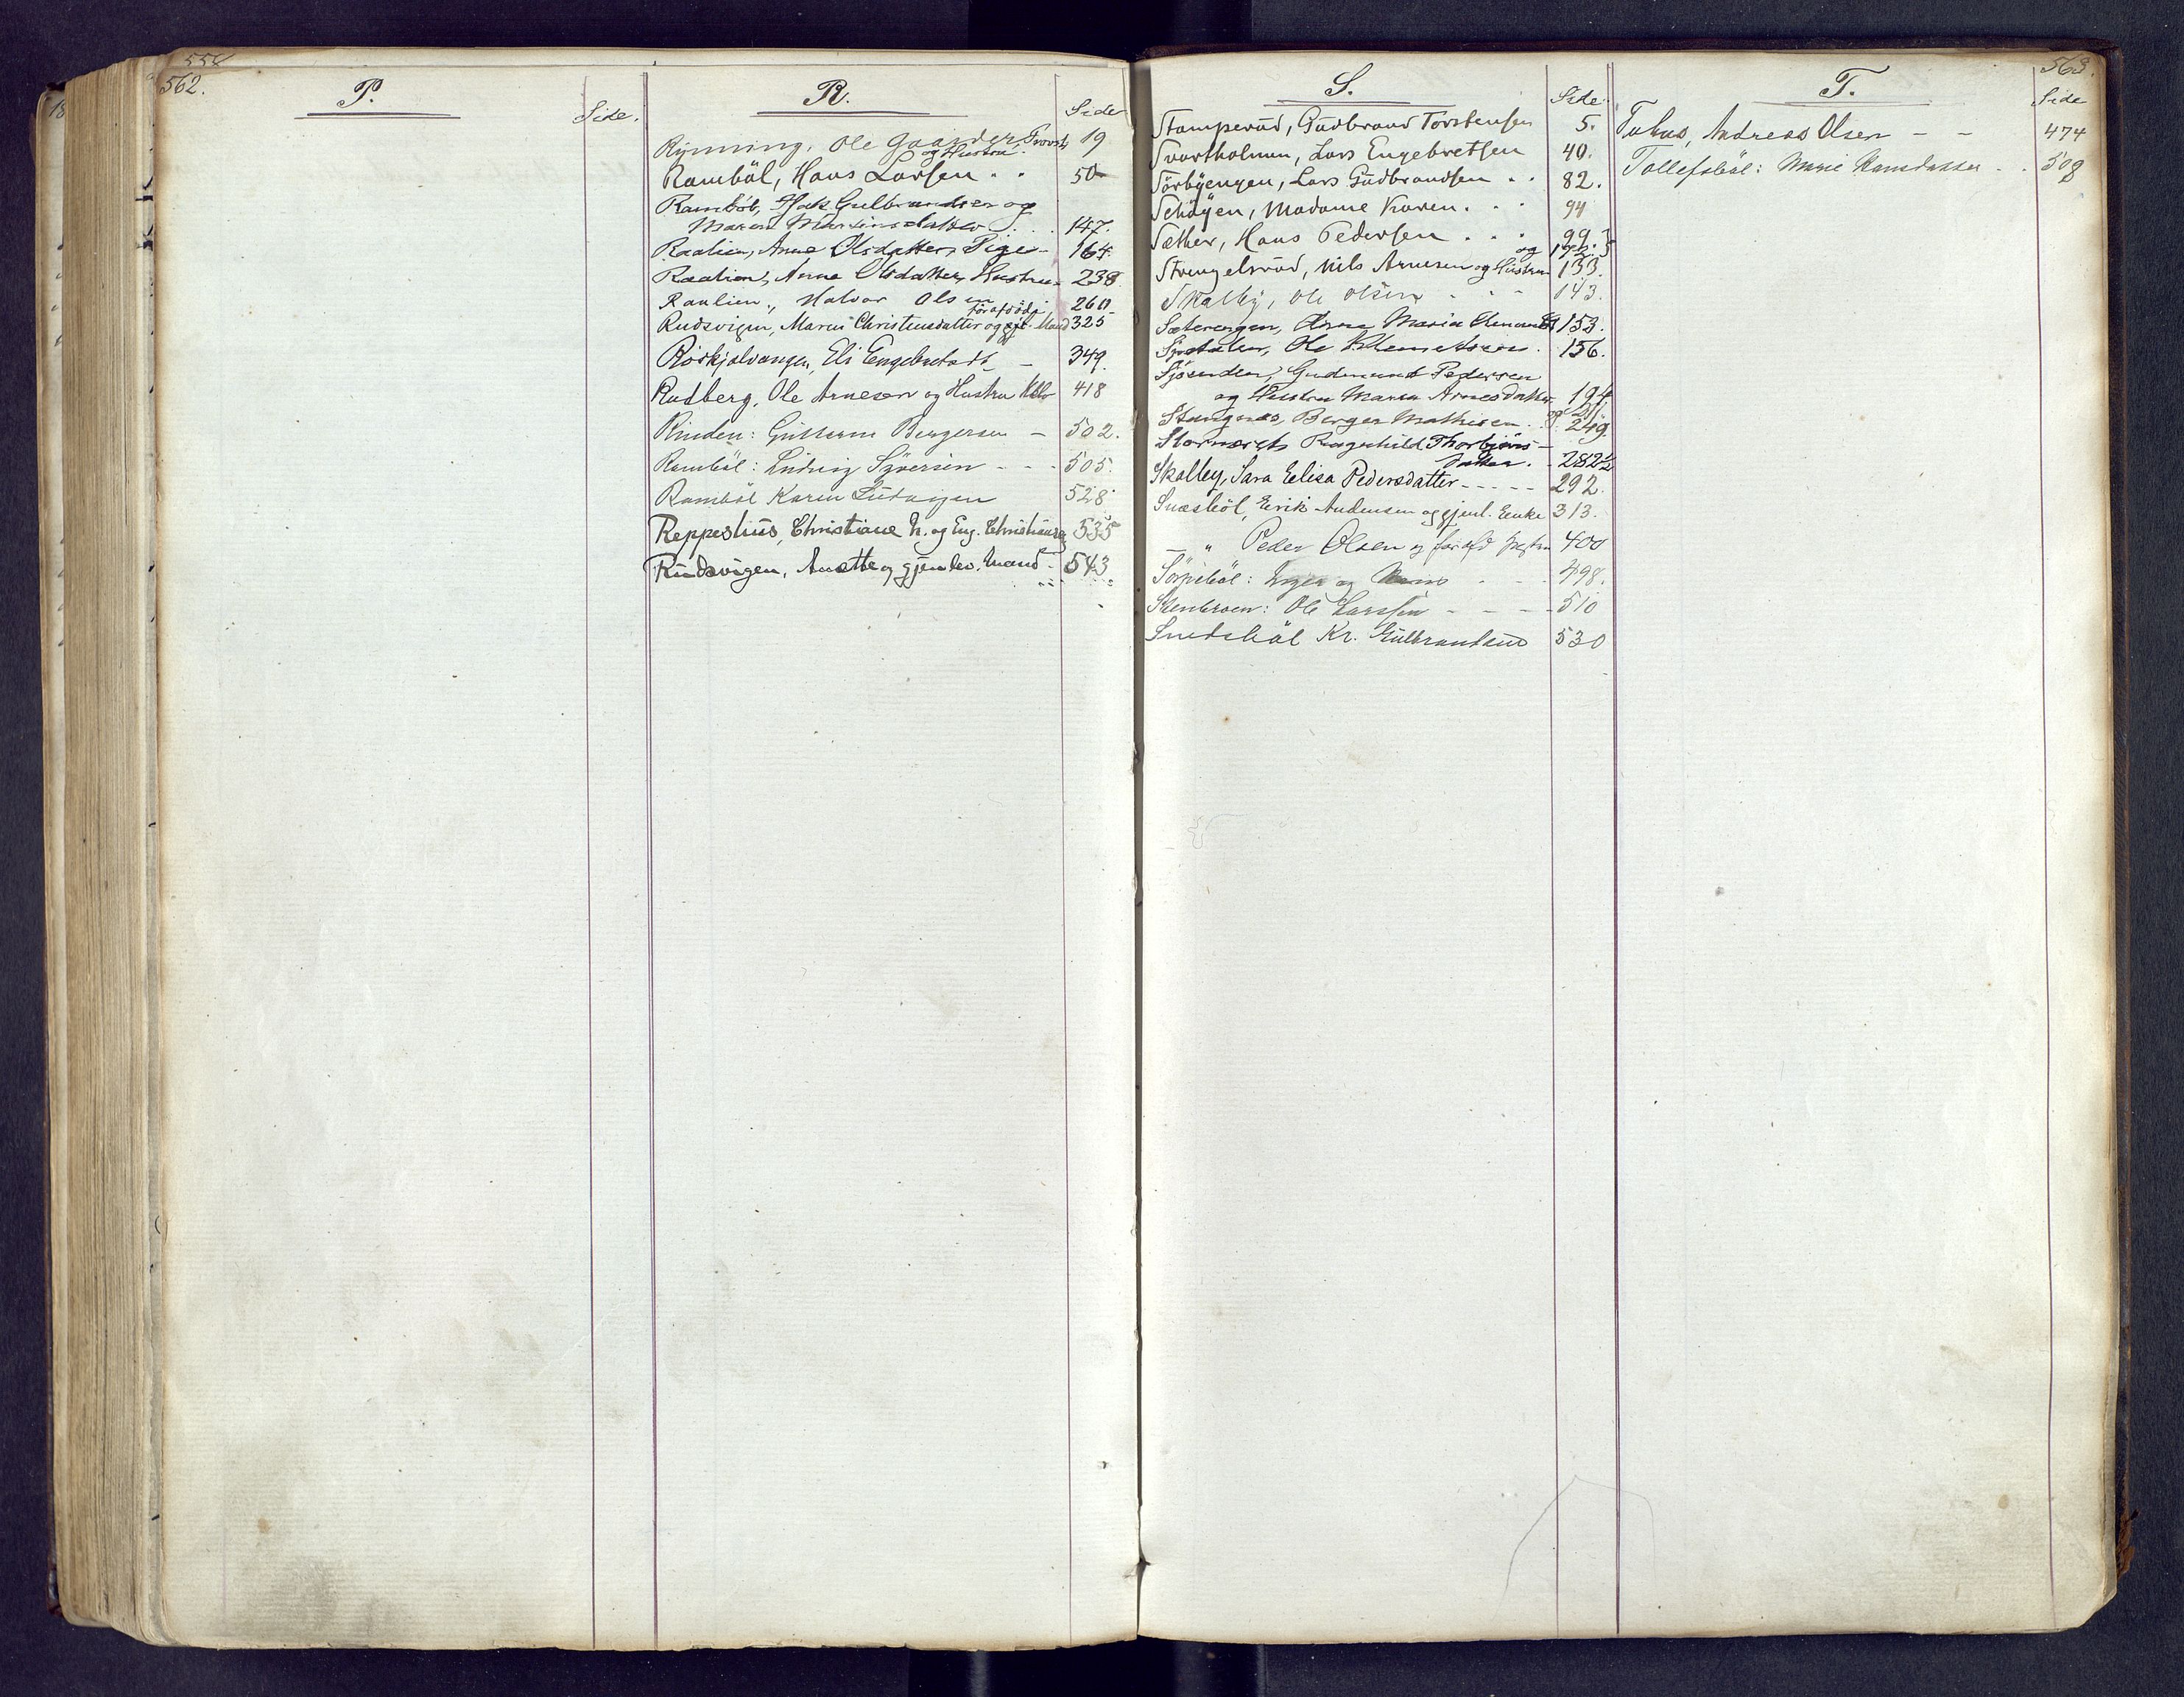 558
562.
P.
Side.
R.
Side
Rynning, Ole Gaarder, Provst, 19
og Hustru.
Ramböl, Hans Larsen . . 50
Ramböl, Isak Gulbrandsen og
Maren Martinsdatter . . . 147.
Raalien, Anne Olsdatter, Pige - 164.
Raalien, Anne Olsdatter, Hustru - 238.
Raulien, Halvor Olsen 260.
Rudsvigen, Maren Christensdatter og gjl. Mand 325
Röskjolvangen, Eli Engebretsdt. - 349.
Rudberg, Ole Arnesen og Hustru 418
Rinden: Guttorm Bergersen - 502.
Ramböl: Ludvig Syversen - - - 505.
Ramböl Karen Ludvigsen 528
Reppeshus, Christiane h. og Eng. Christiansen 535
Rudsvigen, Anette og gjenlev. Mand - 543
563.
S.
Side
Stamperud, Gudbrand Torstensen 5.
Svartholmen, Lars Engebretsen 40.
Sörbyengen, Lars Gudbrandsen . . 82.
Schøyen, Madame Karen. . . 94
Sæther, Hans Pedersen . . . 99.
og 172.
Strengelsrud, Nils Arnesen og Hustru 133.
Skalby, Ole Olsen . . . 143.
Sæterengen, Anne Maria 153.
Ole Klemetsen. 156.
Gudmund Pedersen
og Hustru Maren Arnesdatter 194
Stangnæs, Berger Mathisen . . og 249.
Ragnhild Thorbjörns-
datter. - 282
Skalby, Sara Eelisa Pedersdatter - - - - - 292.
Snæsböl, Erik Andersen og gjenl. Enke 313.
- " Peder Olsen og 400
Sörpeböl: Inger og - - - 498.
Stenbroen: Ole Larssen - - - - 510
Snedsböl Kr. Gulbrandsens 530
T.
Side
Andreas Olsen - - 474
Tollefsböl: Marie . . 508